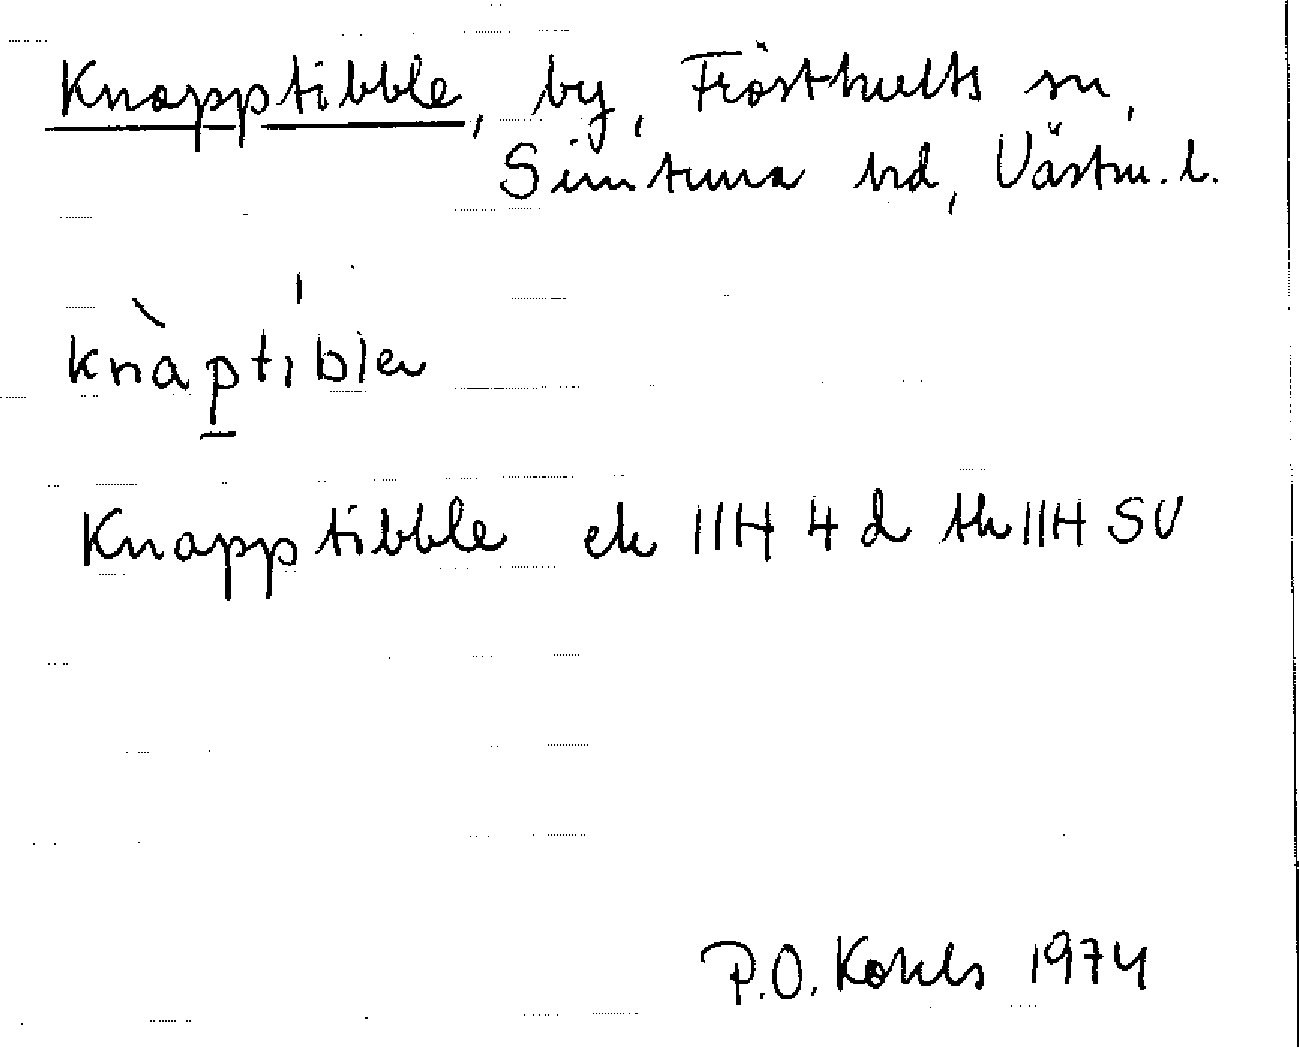 Knapptibble, by, Frösthults sn,
Simtuna hd, Västm. l.
knàptible
Knapptibble ek 11H 4d tk 11H SV
P.O. 1974